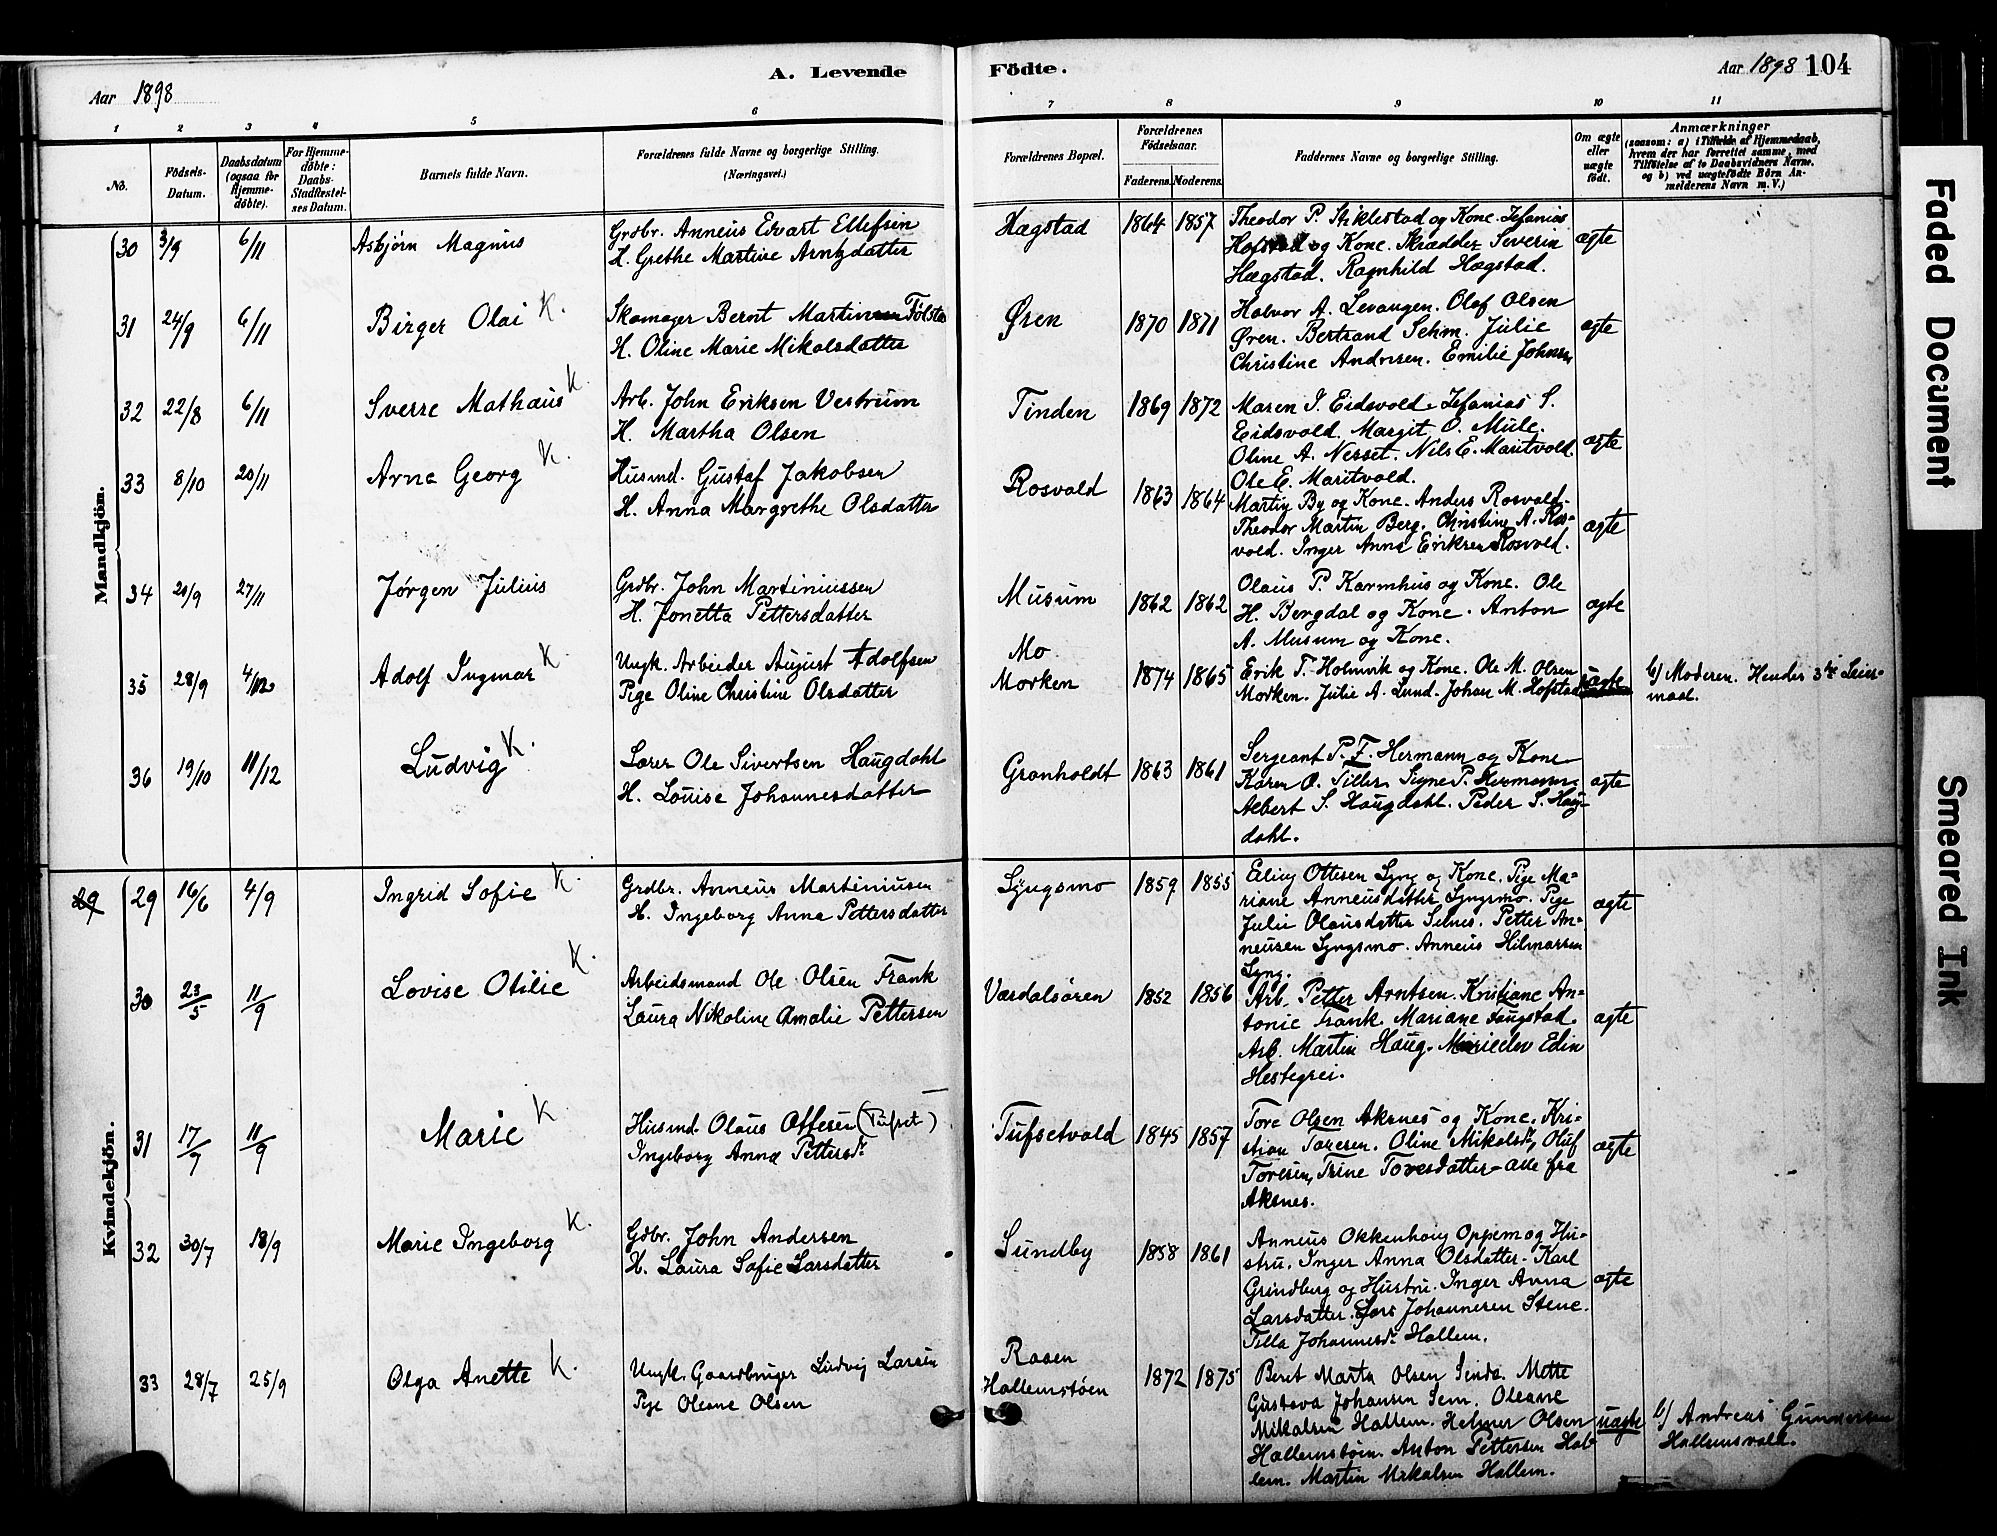 A. Levende Fødte.
Aar 1898
Aar 1898 104
1 2 3 4 5 6 7 8 9 10 11
No.
Fødsels-
Datum.
Daabsdatum
(ogsaa for
Hjemme-
døbte).
For Hjemme-
døbte:
Daabs-
Stadfæstel-
ses Datum.
Barnets fulde Navn.
Forældrenes fulde Navne og borgerlige Stilling.
(Næringsvei.)
Forældrenes Bopæl.
Forældrenes
Fødselsaar.
Faderens. Moderens.
Faddernes Navne og borgerlige Stilling.
Om ægte
eller
uægte
født.
Anmærkninger
(saasom: a) i Tilfælde af Hjemmedaab,
hvem der har forrettet samme, med
Tilføielse af to Daabsvidners Navne.
og b) ved uægtefødte Børn An-
melderens Navn m. V.)
Mandkjön.
30 3/9 6/11 Asbjørn Magnus
Grdbr. Anneus Edvart Ellefsen
H. Grethe Martine Arntzdatter
Hægstad 1864 1857
Theodor P. Stiklestad og Kone. Zefanias
Hofstad og Kone. Skrædder Severin
Hægstad. Ragnhild Hægstad.
ægte
31 24/9 6/11 Birger Olai K.
Skomager Bernt Martin Følstad
H. Oline Marie Mikalsdatter
Øren 1870 1871
Halvor A. Levangen. Olaf Olsen
Øren. Bertrand Sehm. Julie
Christine Andresen. Emilie Johnsen
ægte
32 22/8 6/11 Sverre Mathæus K.
Arb. John Eriksen Vestrum
H. Martha Olsen
Tinden 1869 1872
Maren J. Eidsvold. Zefanias S.
Eidsvold. Margit O. Mule.
Oline A. Nesset. Nils E. Maritvold.
Ole E. Maritvold.
ægte
33 8/10 20/11 Arne Georg K.
Husmd. Gustaf Jakobsen
H. Anna Margrethe Olsdatter
Rosvald 1863 1864
Martin By og Kone. Anders Rosvald.
Theodor Martin Berg. Christine A. Ros-
vold. Inger Anna Eriksen Rosvold.
ægte
34 20/9 27/11 Jørgen Julius
Grdbr. John Martiniussen
H. Jonetta Pettersdatter
Musum 1862 1862
Olaus P. Karmhus og Kone. Ole
H. Bergdal og Kone. Anton
A. Musum og Kone.
ægte
35 28/9 4/12 Adolf Ingmar K
Ungk. Arbeider August Adolfsen
Pige Oline Christine Olsdatter
Mo
Morken 1874 1865
Erik T. Holmvik og Kone. Ole M. Olsen
Morken. Julie A. Lund. Johan M. Hofstad
uægte
b) Moderen. Hendes 3die Leier-
maal.
36 19/10 11/12 Ludvig K.
Lærer Ole Sivertsen Haugdahl
H. Louise Johannesdatter
Granholdt 1863 1861
Sergeant P. F. Hermann og Kone
Karen O. Tiller. Signe P. Hermann.
Albert S. Haugdahl. Peder S. Haug-
dahl.
ægte
Kvindekjön.
29 29 16/6 4/9 Ingrid Sofie K.
Grdbr. Anneus Martiniusen
H. Ingeborg Anna Pettersdatter
Lyngsmo 1859 1855
Erling Ottesen Lyng og Kone. Pige Ma-
riane Anneusdatter Lyngsmo. Pige
Julie Olausdatter Selnes. Petter An-
neusen Lyngsmo. Anneus Hilmarsen
Lyng.
ægte
30 23/5 11/9 Lovise Otilie K.
Arbeidsmand Ole Olsen Frank
Laura Nikoline Amalie Pettersen
Værdalsøren 1852 1856
Arb. Petter Arntsen. Kristiane An-
tonie Frank. Mariane Haugstad.
Arb. Martin Haug. Edin
Hestegrei.
ægte
31 17/7 11/9 Marie K.
Husmd. Olaus Ottesen (Tufset)
Ingeborg Anna Pettersdr.
Tufsetvald 1845 1857
Tore Olsen Aksnes og Kone. Kri-
stian Toresen. Oline Mikalsdr, Oluf
Toresen, Trine Toresdatter – alle fra
Aksnes.
ægte
32 30/7 18/9 Marie Ingeborg K.
Gdbr. John Andersen
H. Laura Sofie Larsdatter
Sundby 1858 1861
Anneus Okkenhaug Oppem og Hu-
stru. Inger Anna Olsdatter. Karl
Grindberg og Hustru. Inger Anna
Larsdatter. Lars Johannesen Stene.
Tilla Johannesdr. Hallem.
ægte
33 28/7 25/9 Olga Anette K.
Ungk. Gaardbruger Ludvig Larsen
Pige Oleane Olsen
Raaen
Hallemstøen 1872 1875
Beret Marta Olsen Sende. Mette
Gustava Johansen Sem. Oleane
Mikalsen Hallem. Helmer Olsen
Hallemstøen. Anton Pettersen Hal-
lem. Martin Mikalsen Hallem.
uægte
b) Andreas Gunnersen
Hallemsvald.
Faded Document
Smeared Ink